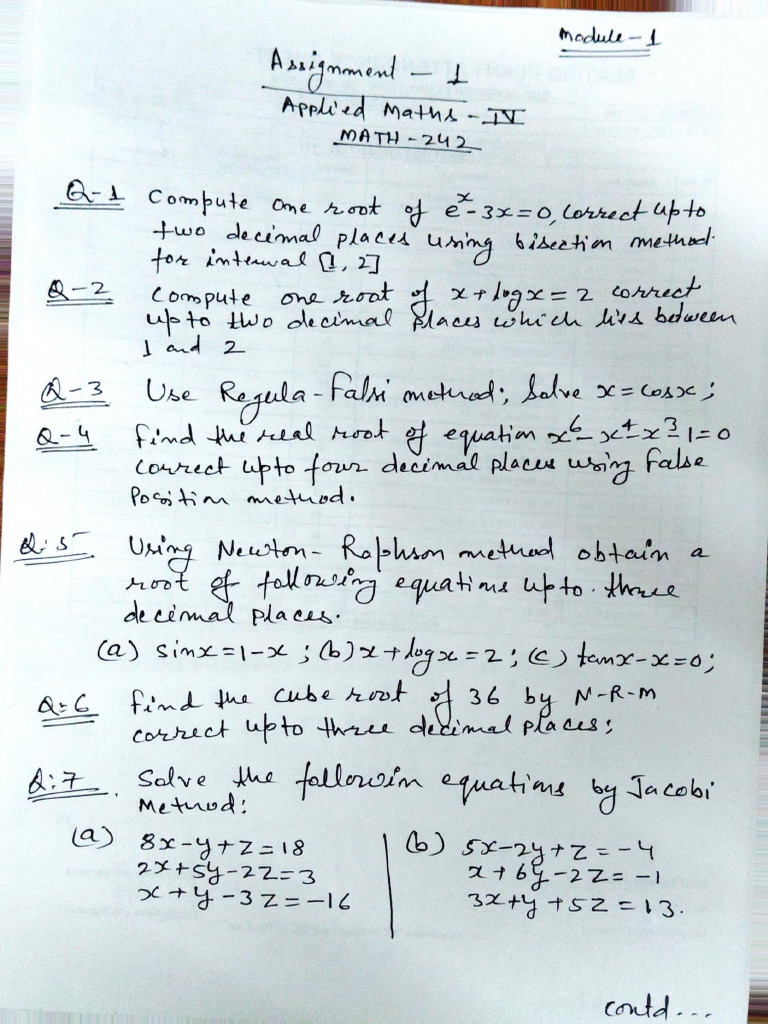 Module - 1
Assignment - 1
Applied Maths - IV
MATH - 242
Q-1 Compute one root of e^x - 3x = 0, correct upto
two decimal places using bisection method
for interval [1, 2]
Q-2 Compute one root of x + log x = 2 correct
upto two decimal places which lies between
1 and 2
Q-3 Use Regula-Falsi method; Solve x = cosx;
Q-4 Find the real root of equation x^6 - x^4 - x^3 - 1 = 0
correct upto four decimal places using False
Position method.
Q:5 Using Newton-Raphson method obtain a
root of following equations upto three
decimal places.
(a) sinx = 1-x ; (b) x + logx = 2 ; (c) tanx - x = 0;
Q:6 Find the cube root of 36 by N-R-M
correct upto three decimal places;
Q:7. Solve the followin equations by Jacobi
Method:
(a) 8x - y + z = 18
2x + 5y - 2z = 3
x + y - 3z = -16
(b) 5x - 2y + z = -4
x + 6y - 2z = -1
3x + y + 5z = 13.
contd...